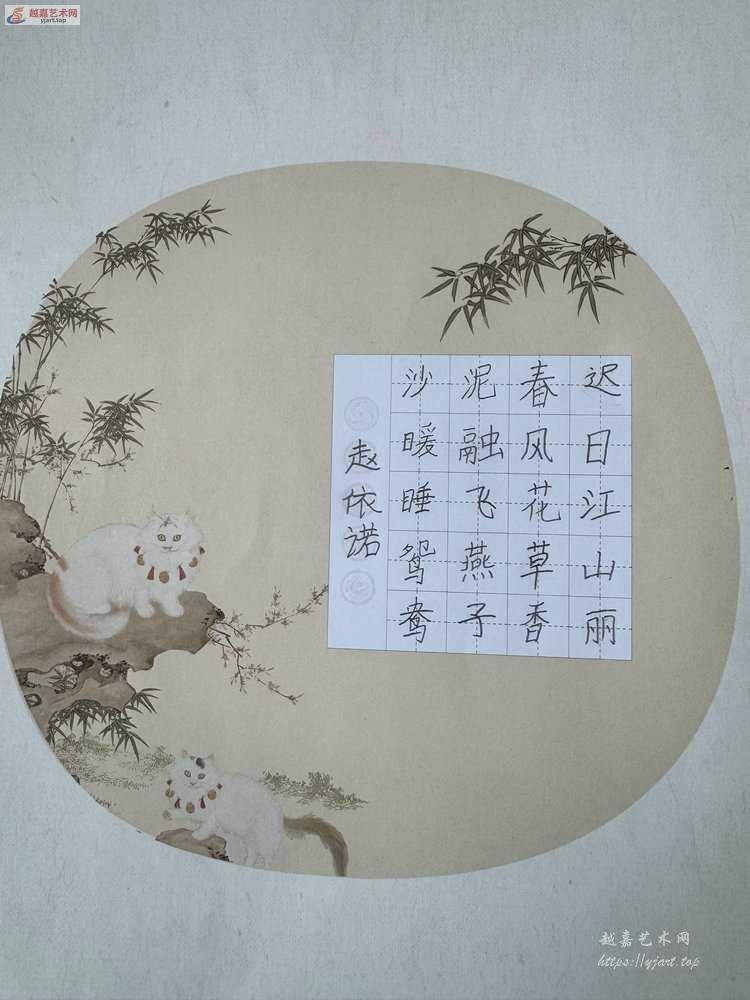 越嘉艺术网
yjart.top
迟日江山丽
春风花草香
泥融飞燕子
沙暖睡鸳鸯
赵依诺
越嘉艺术网
https://yjart.top